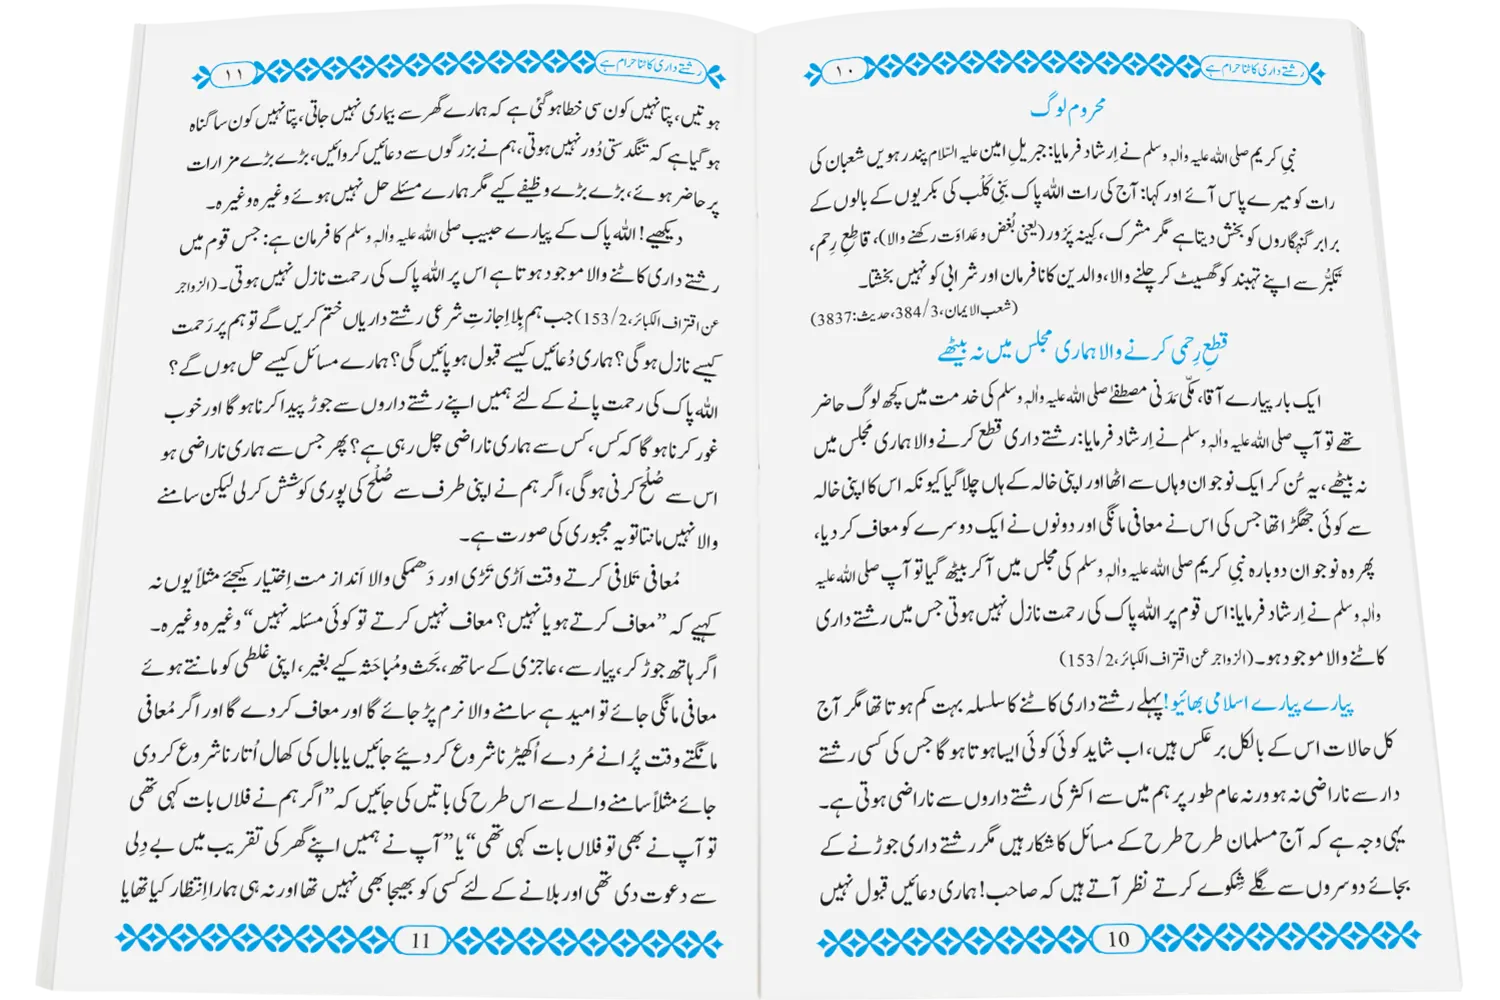 رشتے داری کاٹنا حرام ہے
۱۰
محروم لوگ
نبیِ کریم صلی اللہ علیہ واٰلہٖ وسلم نے اِرشاد فرمایا: جبریلِ امین علیہ السّلام پندرہویں شعبان کی
رات کو میرے پاس آئے اور کہا: آج کی رات اللہ پاک بَنِی کَلْب کی بکریوں کے بالوں کے
برابر گنہگاروں کو بخش دیتا ہے مگر مشرک، کینہ پَرْوَر (یعنی بُغض و عَداوَت رکھنے والا)، قاطعِ رِحم،
تَکَبُّر سے اپنے تہبند کو گھسیٹ کر چلنے والا، والدین کا نافرمان اور شرابی کو نہیں بخشتا۔
(شعب الایمان، 3/384، حدیث: 3837)
قطعِ رِحمی کرنے والا ہماری مجلس میں نہ بیٹھے
ایک بار پیارے آقا، مکّی مَدَنی مصطفےٰ صلی اللہ علیہ واٰلہٖ وسلم کی خدمت میں کچھ لوگ حاضر
تھے تو آپ صلی اللہ علیہ واٰلہٖ وسلم نے اِرشاد فرمایا: رشتے داری قطع کرنے والا ہماری مجلس میں
نہ بیٹھے، یہ سُن کر ایک نوجوان وہاں سے اٹھا اور اپنی خالہ کے ہاں چلا گیا کیونکہ اس کا اپنی خالہ
سے کوئی جھگڑا تھا جس کی اس نے معافی مانگی اور دونوں نے ایک دوسرے کو معاف کر دیا،
پھر وہ نوجوان دوبارہ نبیِ کریم صلی اللہ علیہ واٰلہٖ وسلم کی مجلس میں آ کر بیٹھ گیا تو آپ صلی اللہ علیہ
واٰلہٖ وسلم نے اِرشاد فرمایا: اس قوم پر اللہ پاک کی رحمت نازل نہیں ہوتی جس میں رشتے داری
کاٹنے والا موجود ہو۔ (الزواجر عن اقتراف الکبائر، 2/153)
پیارے پیارے اسلامی بھائیو! پہلے رشتے داری کاٹنے کا سلسلہ بہت کم ہوتا تھا مگر آج
کل حالات اس کے بالکل برعکس ہیں، اب شاید کوئی کوئی ایسا ہوتا ہو گا جس کی کسی رشتے
دار سے ناراضی نہ ہو ورنہ عام طور پر ہم میں سے اکثر کی رشتے داروں سے ناراضی ہوتی ہے۔
یہی وجہ ہے کہ آج مسلمان طرح طرح کے مسائل کا شکار ہیں مگر رشتے داری جوڑنے کے
بجائے دوسروں سے گِلے شِکوے کرتے نظر آتے ہیں کہ صاحب! ہماری دعائیں قبول نہیں
10
رشتے داری کاٹنا حرام ہے
۱۱
ہوتیں، پتا نہیں کون سی خطا ہو گئی ہے کہ ہمارے گھر سے بیماری نہیں جاتی، پتا نہیں کون سا گناہ
ہو گیا ہے کہ تنگدستی دُور نہیں ہوتی، ہم نے بزرگوں سے دعائیں کروائیں، بڑے بڑے مزارات
پر حاضر ہوئے، بڑے بڑے وظیفے کیے مگر ہمارے مسئلے حل نہیں ہوئے وغیرہ وغیرہ۔
دیکھیے! اللہ پاک کے پیارے حبیب صلی اللہ علیہ واٰلہٖ وسلم کا فرمان ہے: جس قوم میں
رشتے داری کاٹنے والا موجود ہوتا ہے اس پر اللہ پاک کی رحمت نازل نہیں ہوتی۔ (الزواجر
عن اقتراف الکبائر، 2/153) جب ہم بِلا اِجازتِ شرعی رشتے داریاں ختم کریں گے تو ہم پر رَحمت
کیسے نازل ہو گی؟ ہماری دُعائیں کیسے قبول ہو پائیں گی؟ ہمارے مسائل کیسے حل ہوں گے؟
اللہ پاک کی رحمت پانے کے لئے ہمیں اپنے رشتے داروں سے جوڑ پیدا کرنا ہو گا اور خوب
غور کرنا ہو گا کہ کس، کس سے ہماری ناراضی چل رہی ہے؟ پھر جس سے ہماری ناراضی ہو
اس سے صُلْح کرنی ہو گی، اگر ہم نے اپنی طرف سے صُلْح کی پوری کوشش کر لی لیکن سامنے
والا نہیں مانتا تو یہ مجبوری کی صورت ہے۔
مُعافی تَلافی کرتے وقت اَڑی تَڑی اور دَھمکی والا اَنداز مت اِختیار کیجئے مثلاً یوں نہ
کہیے کہ ”معاف کرتے ہو یا نہیں؟ معاف نہیں کرتے تو کوئی مسئلہ نہیں“ وغیرہ وغیرہ۔
اگر ہاتھ جوڑ کر، پیار سے، عاجزی کے ساتھ، بَحث و مُباحَثہ کیے بغیر، اپنی غلطی کو مانتے ہوئے
معافی مانگی جائے تو امید ہے سامنے والا نرم پڑ جائے گا اور معاف کر دے گا اور اگر مُعافی
مانگتے وقت پُرانے مُردے اُکھیڑنا شروع کر دیئے جائیں یا بال کی کھال اُتارنا شروع کر دی
جائے مثلاً سامنے والے سے اس طرح کی باتیں کی جائیں کہ ”اگر ہم نے فلاں بات کہی تھی
تو آپ نے بھی تو فلاں بات کہی تھی“ یا ”آپ نے ہمیں اپنے گھر کی تقریب میں بے دِلی
سے دعوت دی تھی اور بلانے کے لئے کسی کو بھیجا بھی نہیں تھا اور نہ ہی ہمارا اِنتظار کیا تھا یا
11